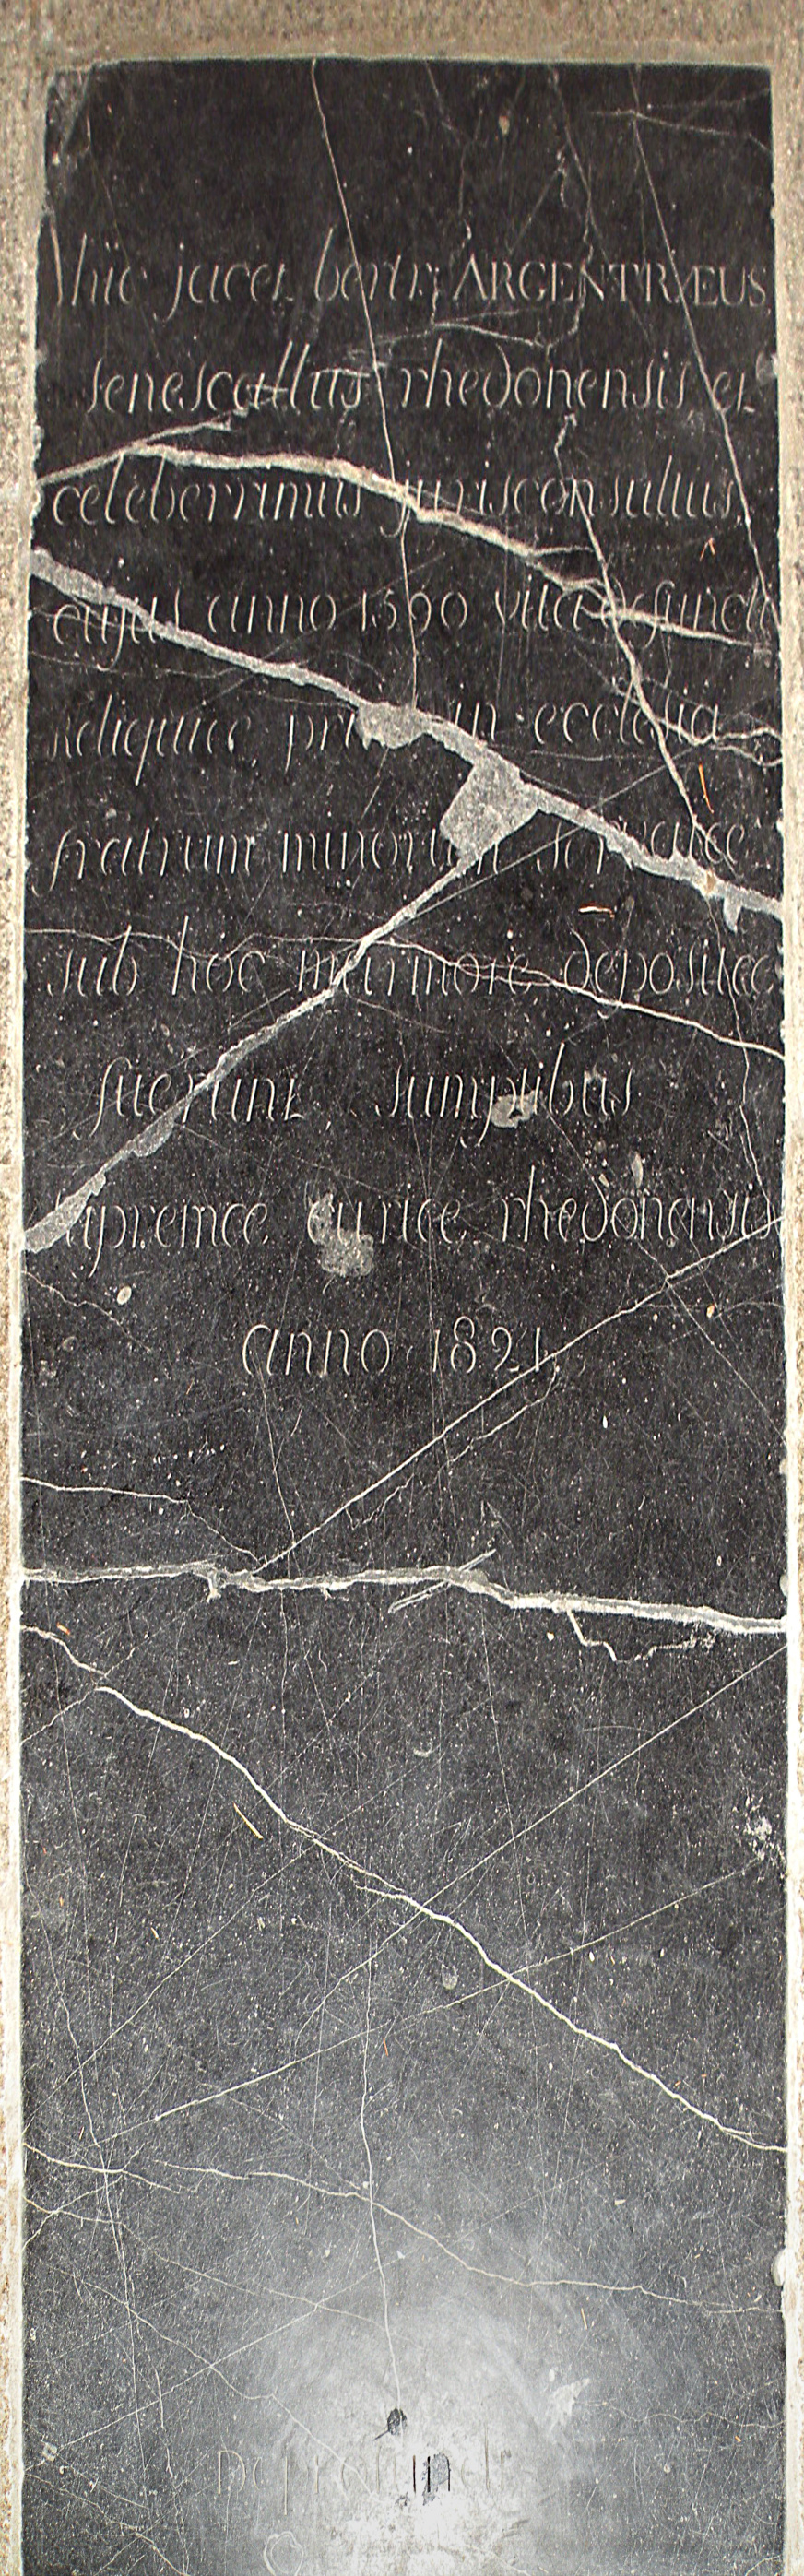 hic jacet bertr; ARGENTRÆUS
senescallus rhedonensis et
celeberrimus jurisconsultus,
cujus anno 1590 vita functi
Reliquiæ in ecclesia
fratrum minorum
sub hoc marmore depositæ
fuerunt sumptibus
supremæ curiæ rhedonensis
anno 1821.